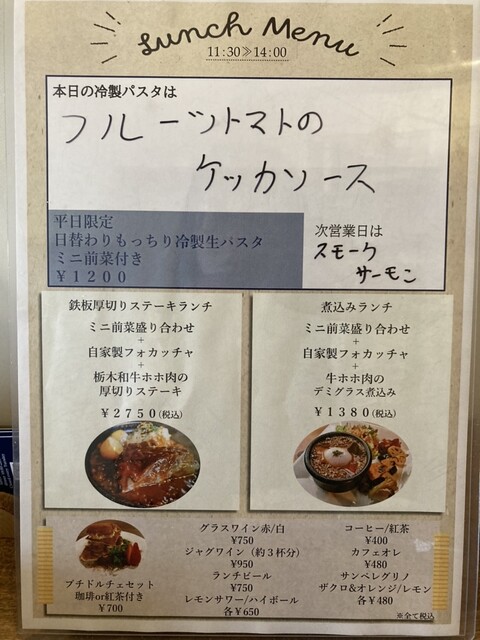 Lunch Menu
11:30≫14:00
本日の冷製パスタは
フルーツトマトの
ケッカソース
平日限定
日替わりもっちり冷製生パスタ
ミニ前菜付き
￥1200
次営業日は
スモーク
サーモン
鉄板厚切りステーキランチ
ミニ前菜盛り合わせ
+
自家製フォカッチャ
+
栃木和牛ホホ肉の
厚切りステーキ
￥2750(税込)
煮込みランチ
ミニ前菜盛り合わせ
+
自家製フォカッチャ
+
牛ホホ肉の
デミグラス煮込み
￥1380(税込)
プチドルチェセット
珈琲or紅茶付き
￥700
グラスワイン赤/白
¥750
ジャグワイン（約３杯分）
¥950
ランチビール
¥750
レモンサワー/ハイボール
各￥650
コーヒー/紅茶
¥400
カフェオレ
¥480
サンペレグリノ
ザクロ&オレンジ/レモン
各¥480
※全て税込